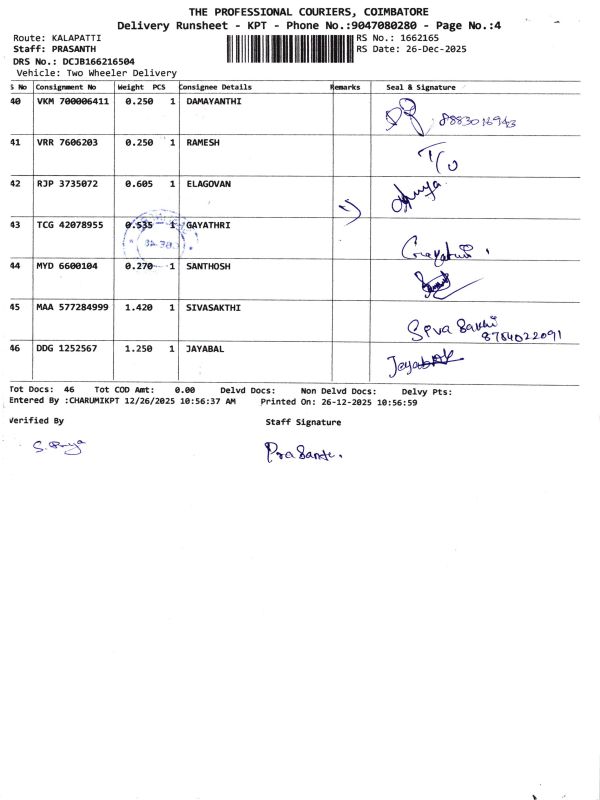 THE PROFESSIONAL COURIERS, COIMBATORE
Delivery Runsheet - KPT - Phone No.:9047080280 - Page No.:4
Route: KALAPATTI RS No.: 1662165
Staff: PRASANTH RS Date: 26-Dec-2025
DRS No.: DCJB166216504
Vehicle: Two Wheeler Delivery
S No Consignment No Weight PCS Consignee Details Remarks Seal & Signature
40 VKM 700006411 0.250 1 DAMAYANTHI 8883016943
41 VRR 7606203 0.250 1 RAMESH T/O
42 RJP 3735072 0.605 1 ELAGOVAN
43 TCG 42078955 0.535 1 GAYATHRI Gayathri
44 MYD 6600104 0.270 1 SANTHOSH
45 MAA 577284999 1.420 1 SIVASAKTHI Siva Sakthi
8784022091
46 DDG 1252567 1.250 1 JAYABAL
Tot Docs: 46 Tot COD Amt: 0.00 Delvd Docs: Non Delvd Docs: Delvy Pts:
Entered By :CHARUMIKPT 12/26/2025 10:56:37 AM Printed On: 26-12-2025 10:56:59
Verified By Staff Signature